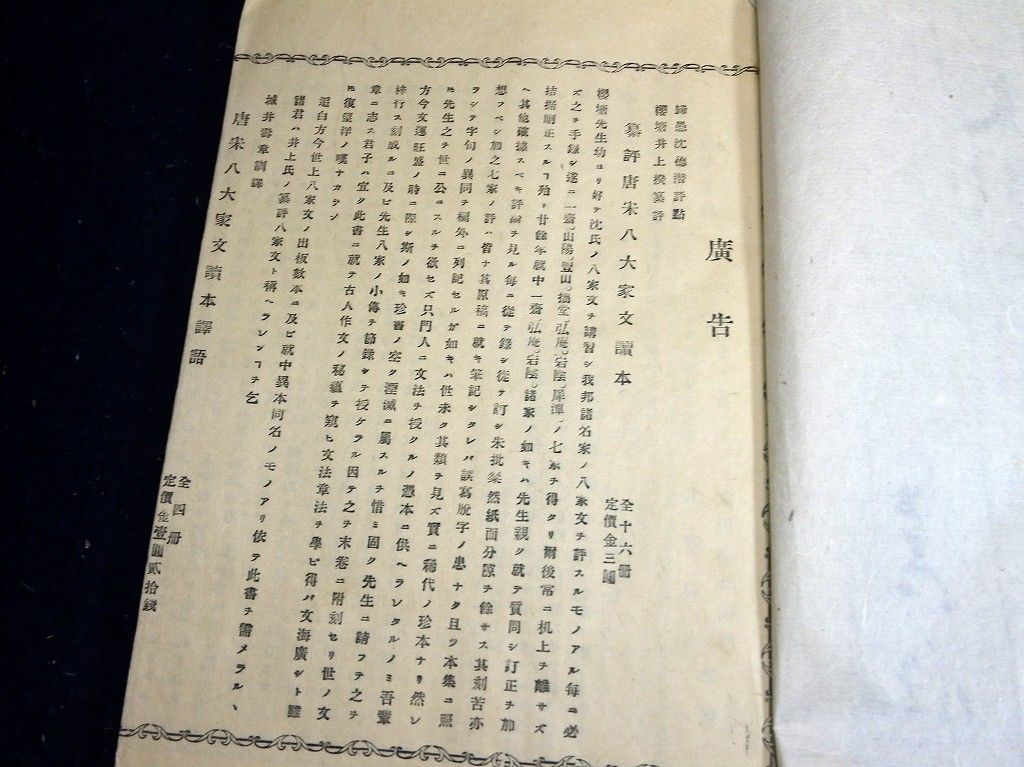 廣告
歸愚沈德潛評點
櫻塘井上揆纂評
纂評唐宋八大家文讀本
全十六冊
定價金三圓
櫻塘先生幼ヨリ好テ沈氏ノ八家文ヲ講習シ我邦諸名家ノ八家文ヲ評スルモノアル每ニ必
ズ之ヲ手錄シ遂ニ一齋。山陽。豐山。拙堂。弘庵。宕陰。犀潭ノ七家ヲ得タリ爾後常ニ机上ヲ離サズ
拮据訂正スルヿ殆ト廿餘年就中一齋。弘庵。宕陰。諸家ノ如キハ先生親ク就テ質問シ訂正ヲ加
ヘ其他確據スベキ評論ヲ見ル每ニ從テ錄シ從テ訂シ朱批粲然紙面分隙ヲ餘サス其刻苦亦
想フベシ加之七家ノ評ハ皆ナ其原稿ニ就キ筆記シタレバ誤寫脫字ノ患ナク且ツ本集ニ照
ラシテ字句ノ異同ヲ欄外ニ列記セルガ如キハ世未タ其類ヲ見ズ實ニ稀代ノ珍本ナリ然レ
𪜈先生之ヲ世ニ公ニスルヲ欲セズ只門人ニ文法ヲ授クルノ憑本ニ供ヘラレタルノミ吾輩
方今文運旺盛ノ時ニ際シ斯ノ如キ珍書ノ空ク湮滅ニ屬スルヲ惜ミ固ク先生ニ請フテ之ヲ
梓行ス刻成ルニ及ビ先生八家ノ小傳ヲ節錄シテ授ケラル因テ之ヲ末卷ニ附刻セリ世ノ文
章ニ志ス君子ハ宜ク此書ニ就テ古人作文ノ秘蘊ヲ窺ヒ文法章法ヲ學ビ得バ文海廣シト雖
𪜈復望洋ノ嘆ナカラン
追白方今世上八家文ノ出板數本ニ及ビ就中異本同名ノモノアリ依テ此書ヲ需メラルヽ
諸君ハ井上氏ノ纂評八家文ト稱ヘラレンヿヲ乞
城井壽章訓譯
唐宋八大家文讀本譯語
全四冊
定價金壹圓貳拾錢